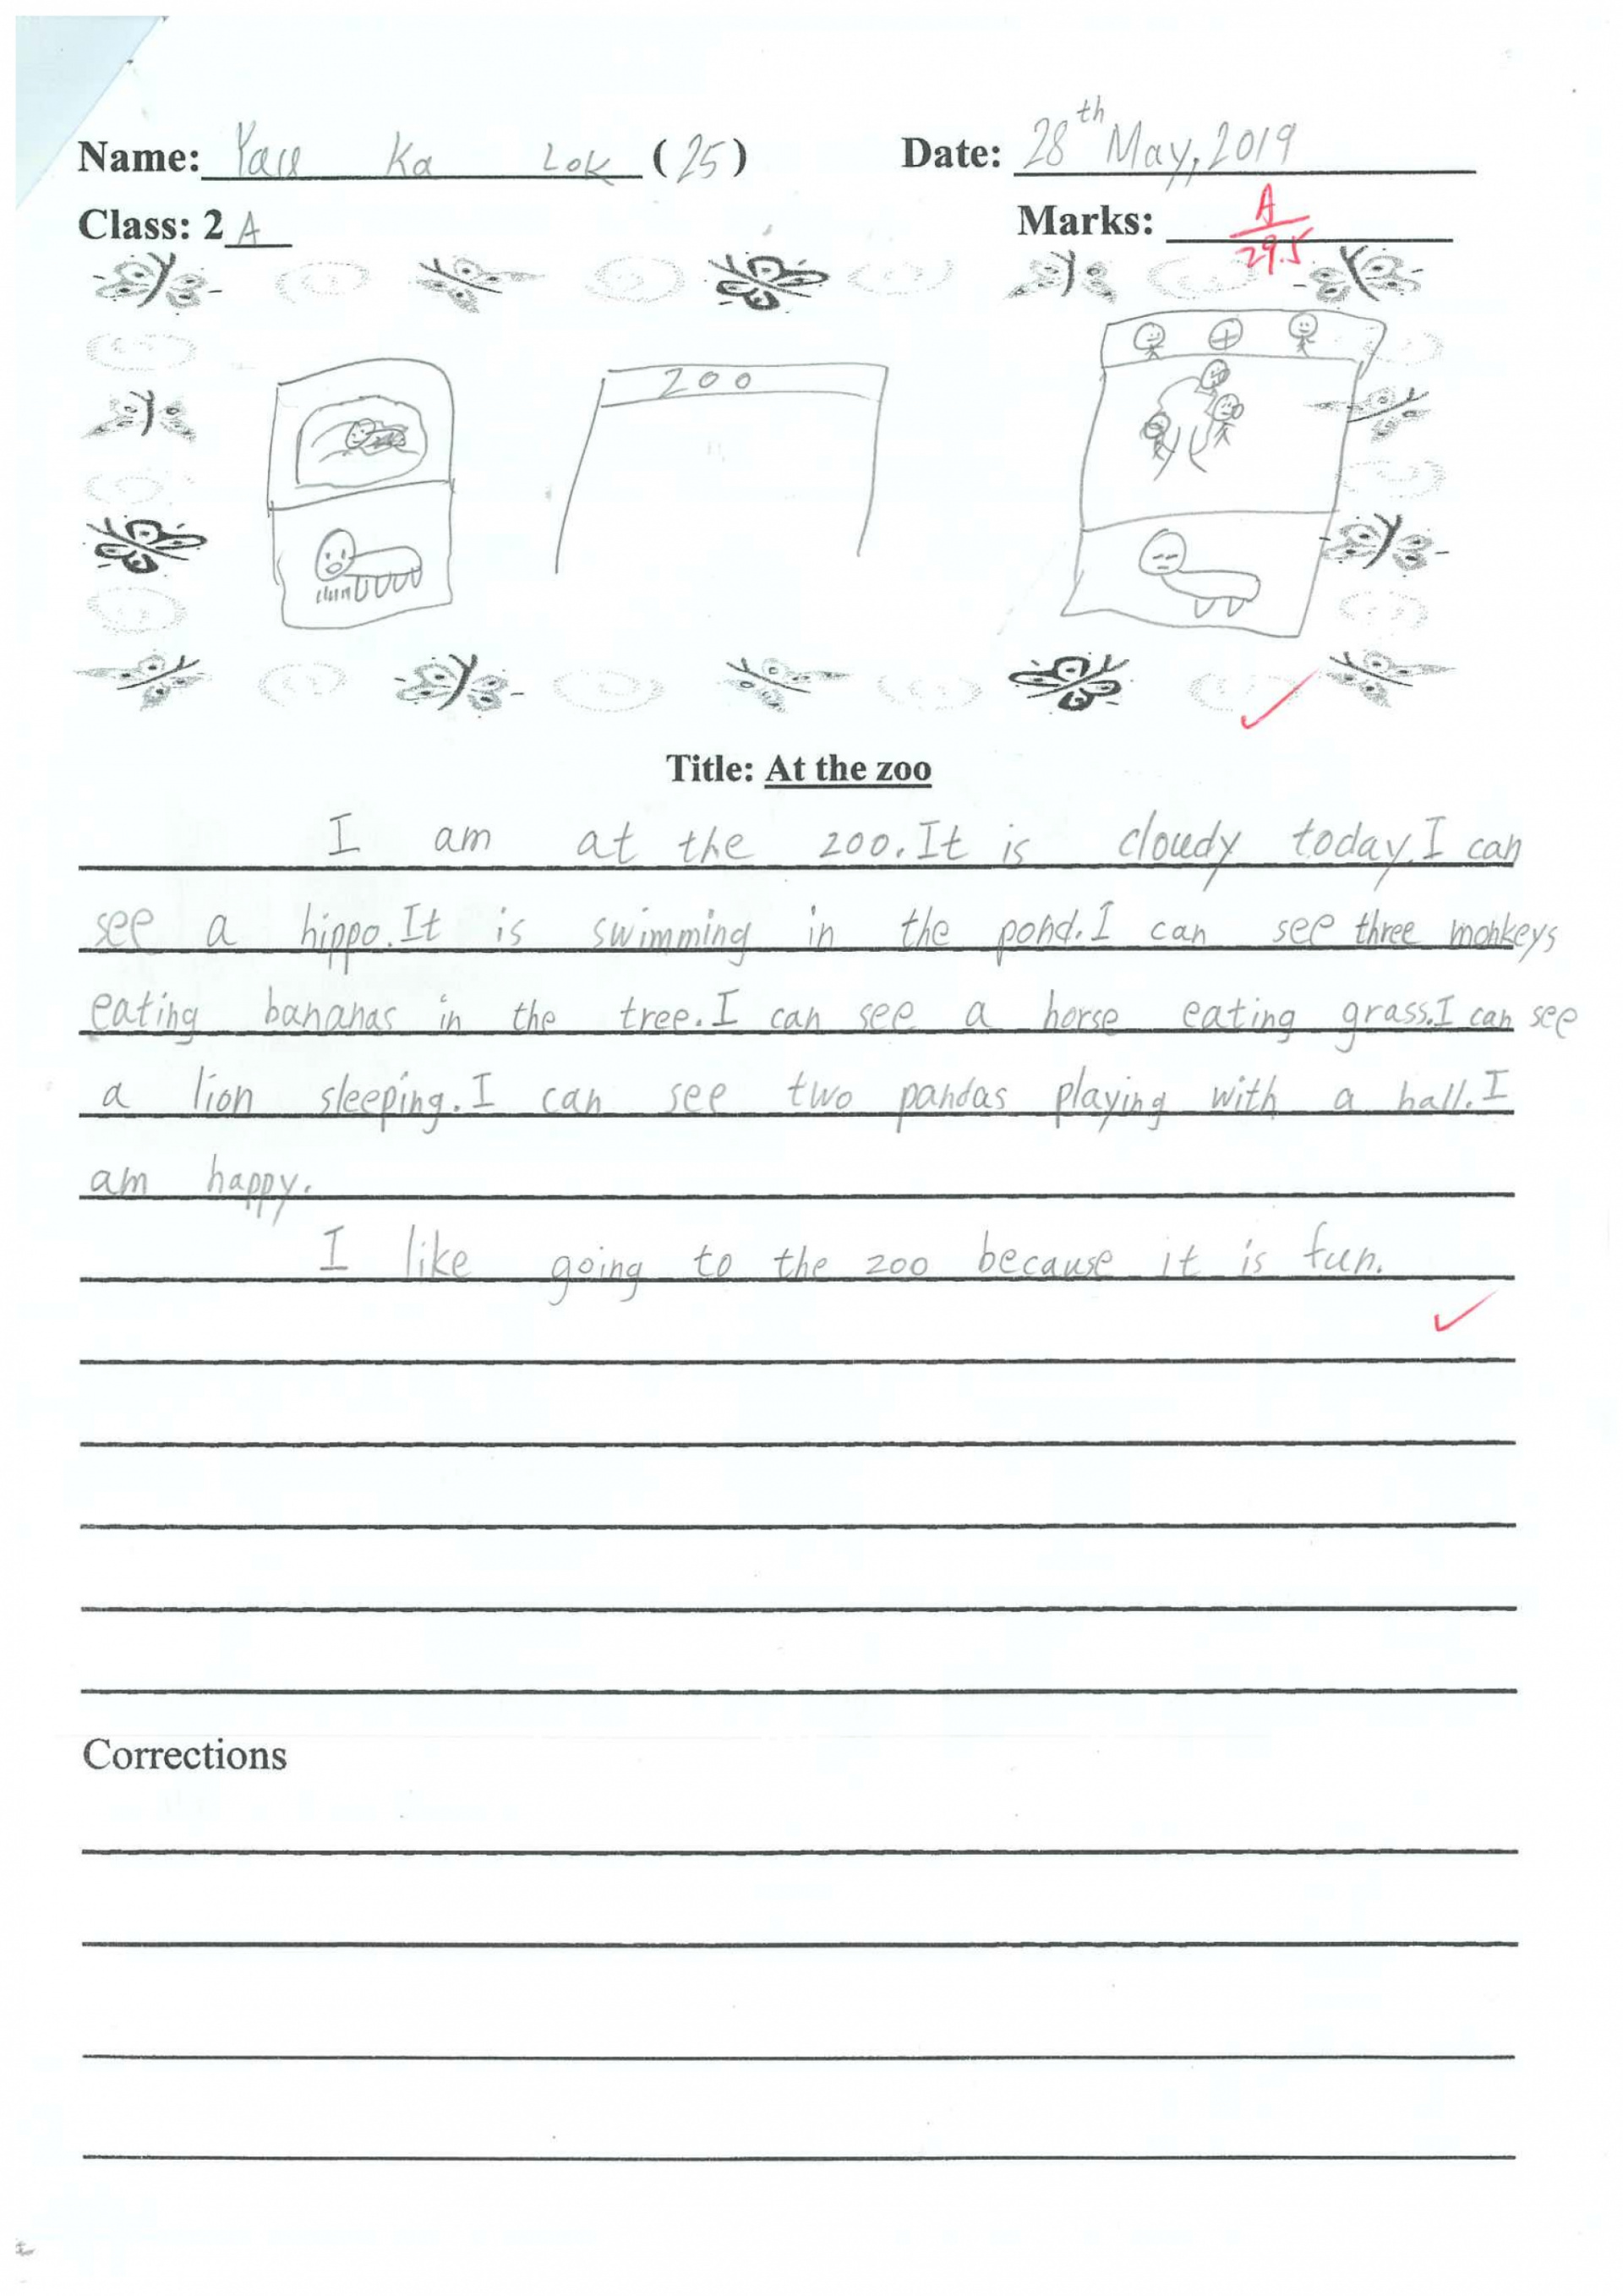 Name: Yau Ka Lok (25) Date: 28th May, 2019
Class: 2 A Marks: A 29.5
zoo
Title: At the zoo
I am at the zoo. It is cloudy today. I can
see a hippo. It is swimming in the pond. I can see three monkeys
eating bananas in the tree. I can see a horse eating grass. I can see
a lion sleeping. I can see two pandas playing with a ball. I
am happy.
I like going to the zoo because it is fun.
Corrections